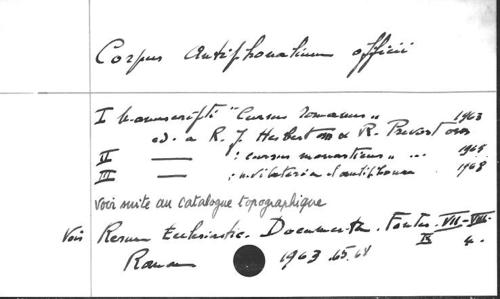 Corpus Antiphonalium officii
I Manuscripti "Cursus romanus" 1963
ed. a R. J. Hesbert OSB & R. Prevost OSB
II — : cursus monasticus „ ... 1965
III — : Invitatoria et antiphonae 1968
voir suite au catalogue topographique
Voir Rerum Ecclesiastic. Documenta. Fontes. VII-VIII-
IX
Romae 1963.65.68